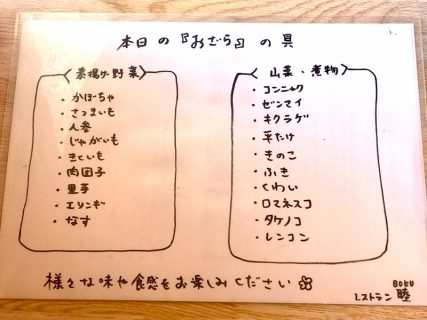 本日の『おざら』の具
素揚げ野菜
・かぼちゃ
・さつまいも
・人参
・じゃがいも
・きくいも
・肉団子
・里芋
・エリンギ
・なす
山菜・煮物
・コンニャク
・ゼンマイ
・キクラゲ
・平たけ
・きのこ
・ふき
・くわい
・ロマネスコ
・タケノコ
・レンコン
様々な味や食感をお楽しみください
BOKU
レストラン 睦